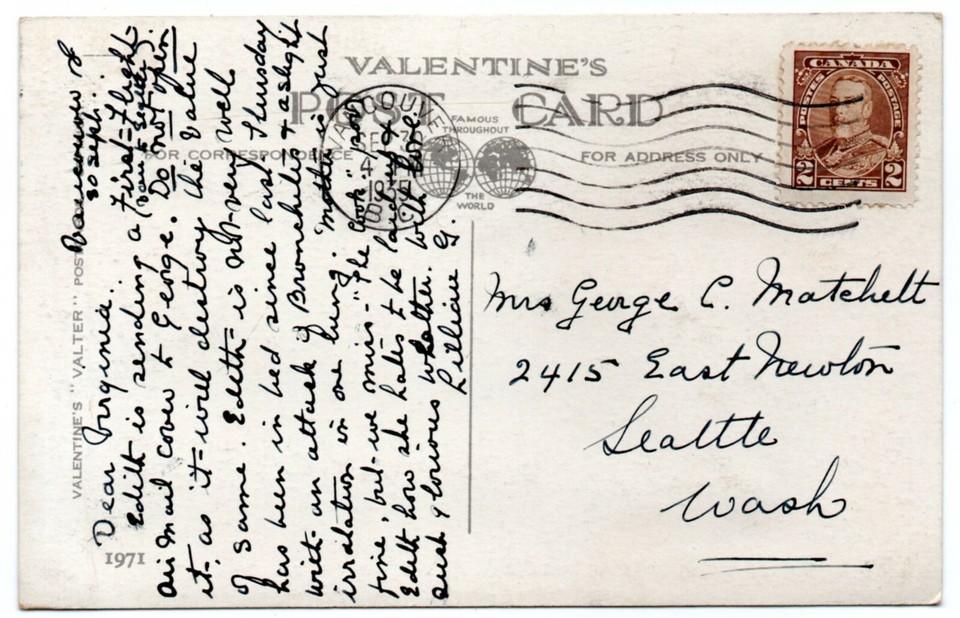 VALENTINE'S
POST CARD
FAMOUS
THROUGHOUT
THE
WORLD
FOR CORRESPONDENCE
FOR ADDRESS ONLY
VALENTINE'S "VALTER" POST
1971
CANADA
POSTES POSTAGE
2 2
CENTS
VANCOUVER
Vancouver
30 Sept.
Dear Virginia.
Edith is sending a First Flight
(South
Air Mail cover to George. Do not open
it as it will destroy the value
of same. Edith is not very well
has been in bed since last Thursday
with an attack of Bronchitis & a slight
irrelation in one lung. Mother is just
fine, but we miss "the Cook" poor
Edith how she hates to be laid up &
such glorious weather. With love
Lillian G.
Mrs George C. Matchett
2415 East Newton
Seattle
Wash